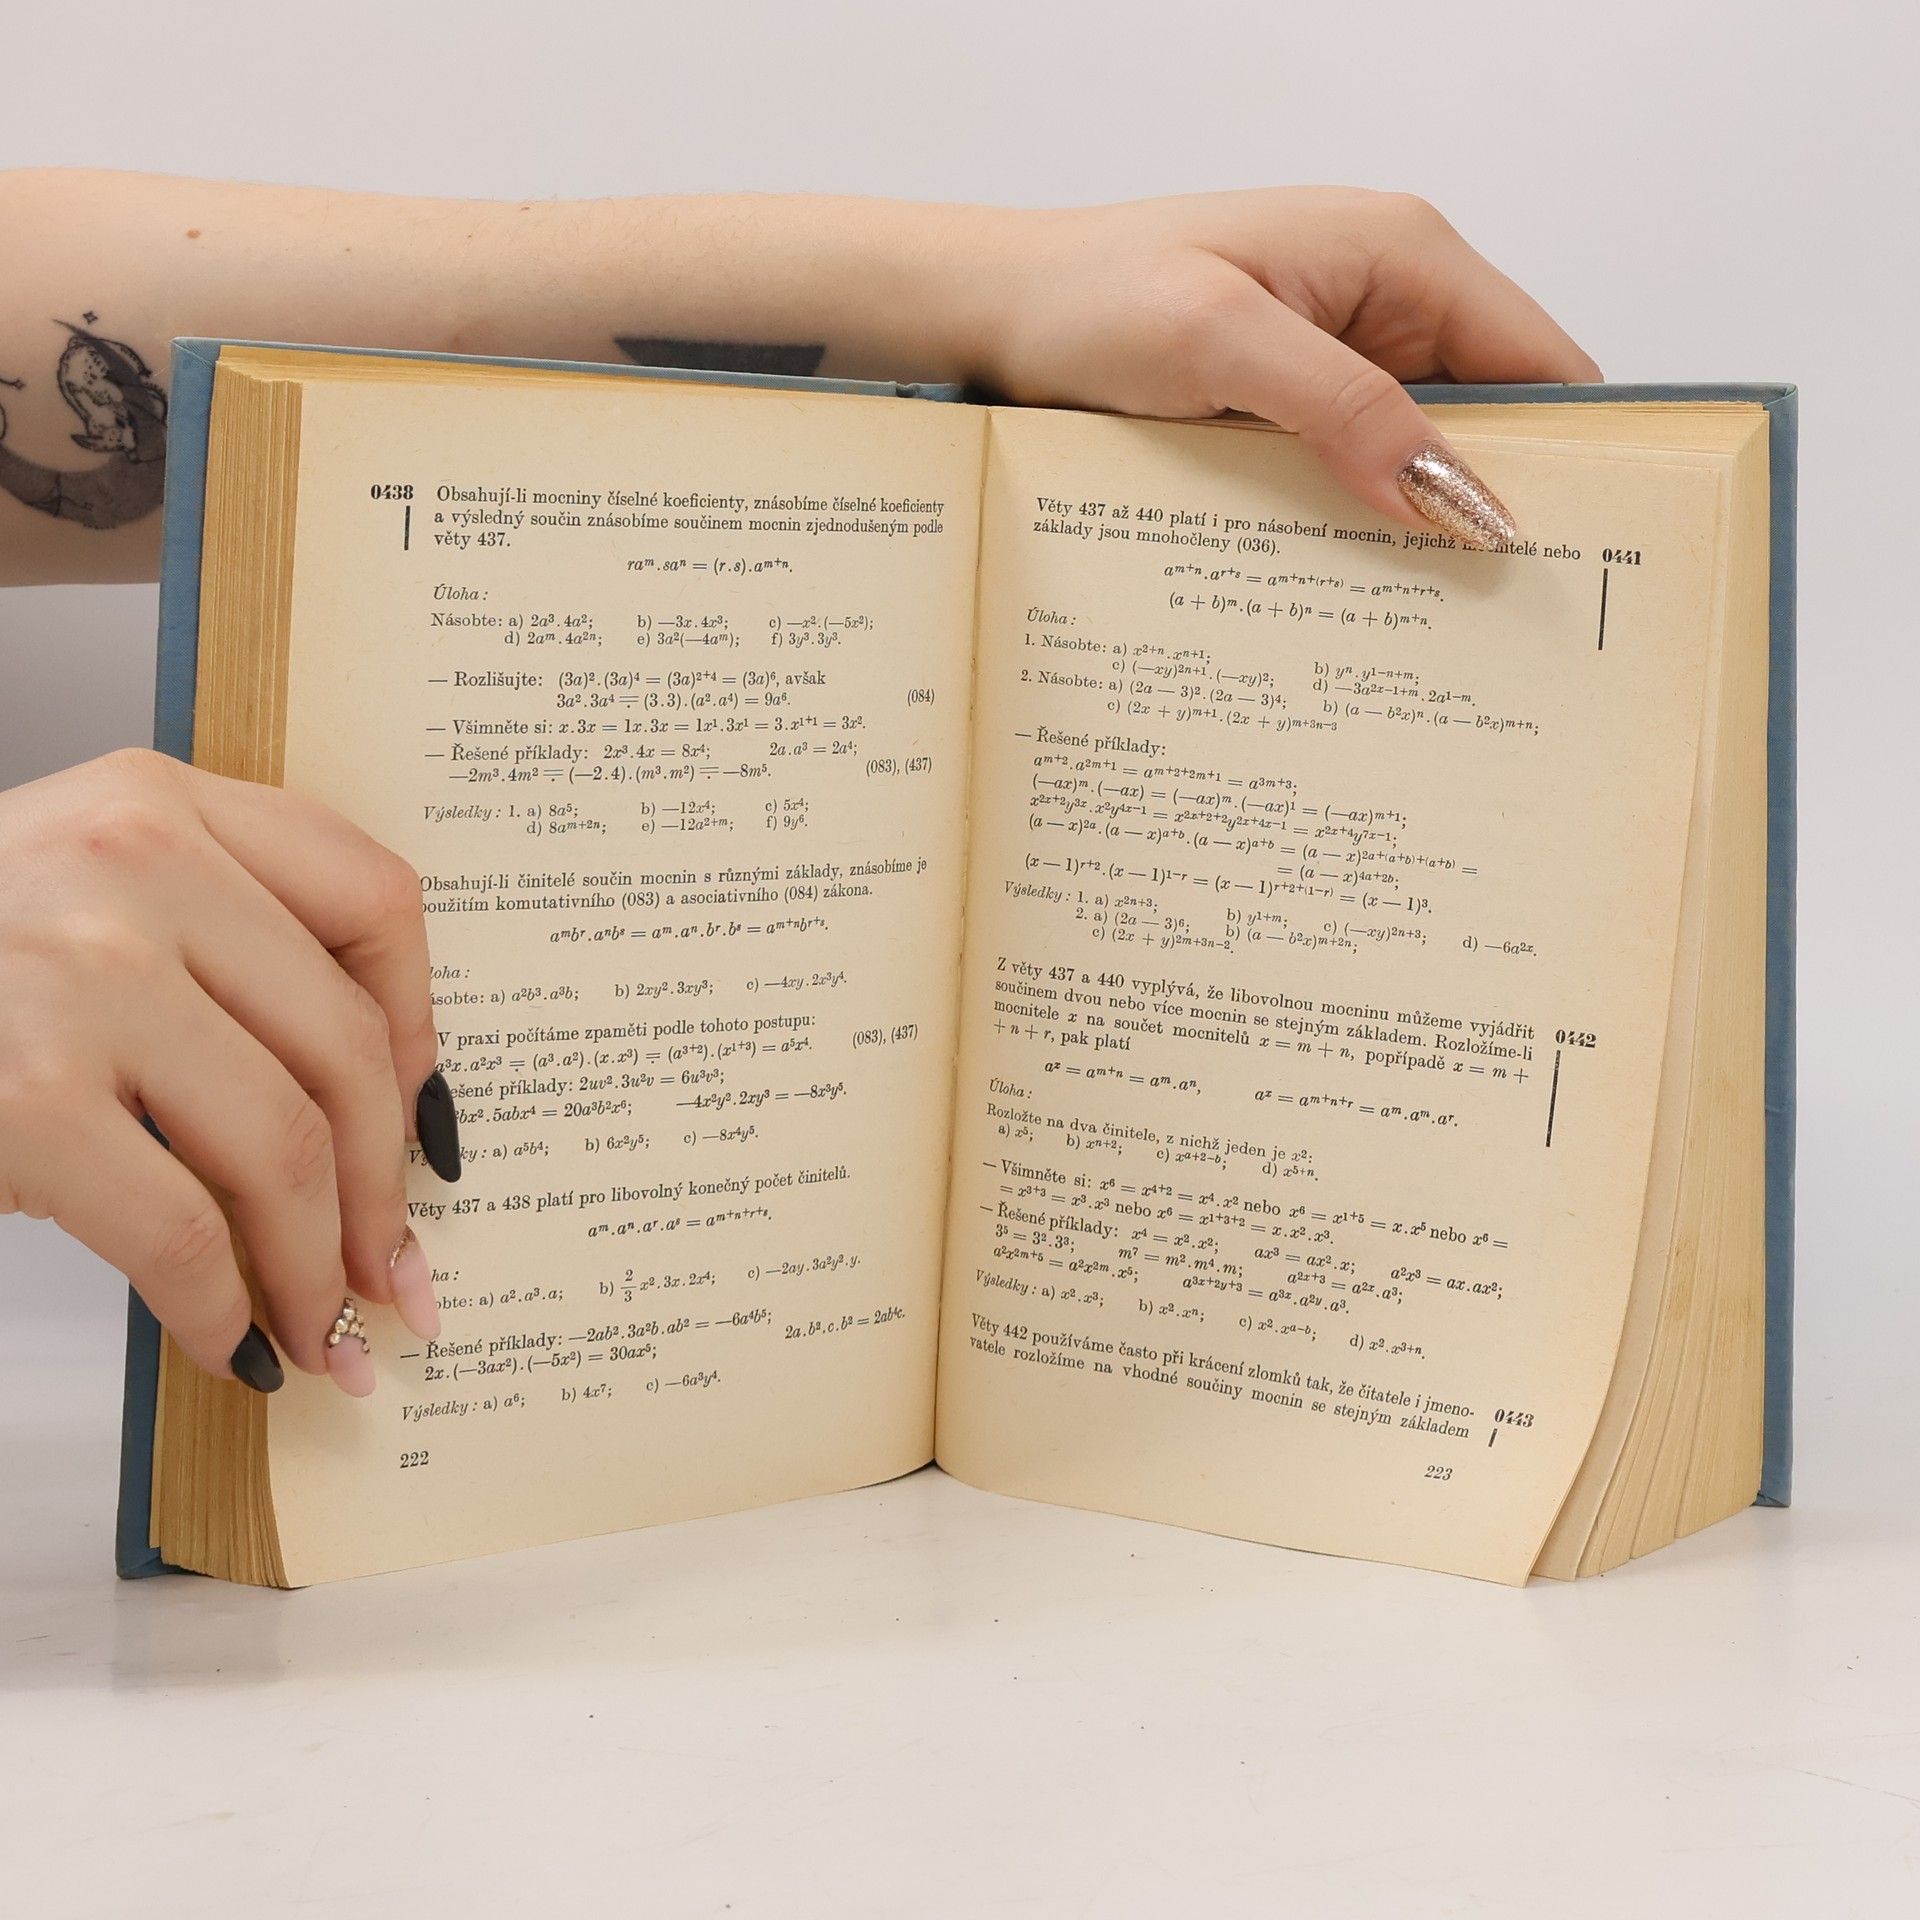 0438 Obsahují-li mocniny číselné koeficienty, znásobíme číselné koeficienty
a výsledný součin znásobíme součinem mocnin zjednodušeným podle
věty 437.
raᵐ.saⁿ = (r.s).aᵐ⁺ⁿ.
Úloha:
Násobte: a) 2a³.4a²; b) —3x.4x³; c) —x².(—5x²);
d) 2aᵐ.4a²ⁿ; e) 3a²(—4aᵐ); f) 3y³.3y³.
— Rozlišujte: (3a)².(3a)⁴ = (3a)²⁺⁴ = (3a)⁶, avšak
3a².3a⁴ = (3.3).(a².a⁴) = 9a⁶. (084)
— Všimněte si: x.3x = 1x.3x = 1x¹.3x¹ = 3.x¹⁺¹ = 3x².
— Řešené příklady: 2x³.4x = 8x⁴; 2a.a³ = 2a⁴;
—2m³.4m² = (—2.4).(m³.m²) = —8m⁵. (083), (437)
Výsledky: 1. a) 8a⁵; b) —12x⁴; c) 5x⁴;
d) 8aᵐ⁺²ⁿ; e) —12a²⁺ᵐ; f) 9y⁶.
Obsahují-li činitelé součin mocnin s různými základy, znásobíme je
použitím komutativního (083) a asociativního (084) zákona.
aᵐbʳ.aⁿbˢ = aᵐ.aⁿ.bʳ.bˢ = aᵐ⁺ⁿbʳ⁺ˢ.
a) a²b³.a³b; b) 2xy².3xy³; c) —4xy.2x³y⁴.
V praxi počítáme zpaměti podle tohoto postupu:
a³x.a²x³ = (a³.a²).(x.x³) = (a³⁺²).(x¹⁺³) = a⁵x⁴. (083), (437)
příklady: 2uv².3u²v = 6u³v³;
bx².5abx⁴ = 20a³b²x⁶; —4x²y².2xy³ = —8x³y⁵.
a) a⁵b⁴; b) 6x²y⁵; c) —8x⁴y⁵.
Věty 437 a 438 platí pro libovolný konečný počet činitelů.
aᵐ.aⁿ.aʳ.aˢ = aᵐ⁺ⁿ⁺ʳ⁺ˢ.
a) a².a³.a; b) 2/3 x².3x.2x⁴; c) —2ay.3a²y².y.
— Řešené příklady: —2ab².3a²b.ab² = —6a⁴b⁵;
2x.(—3ax²).(—5x²) = 30ax⁵; 2a.b².c.b² = 2ab⁴c.
Výsledky: a) a⁶; b) 4x⁷; c) —6a³y⁴.
222
Věty 437 až 440 platí i pro násobení mocnin, jejichž mocnitelé nebo 0441
základy jsou mnohočleny (036).
aᵐ⁺ⁿ.aʳ⁺ˢ = aᵐ⁺ⁿ⁺⁽ʳ⁺ˢ⁾ = aᵐ⁺ⁿ⁺ʳ⁺ˢ.
(a + b)ᵐ.(a + b)ⁿ = (a + b)ᵐ⁺ⁿ.
Úloha:
1. Násobte: a) x²⁺ⁿ.xⁿ⁺¹; b) yⁿ.y¹⁻ⁿ⁺ᵐ;
c) (—xy)²ⁿ⁺¹.(—xy)²; d) —3a²ˣ⁻¹⁺ᵐ.2a¹⁻ᵐ.
2. Násobte: a) (2a — 3)².(2a — 3)⁴; b) (a — b²x)ⁿ.(a — b²x)ᵐ⁺ⁿ;
c) (2x + y)ᵐ⁺¹.(2x + y)ᵐ⁺³ⁿ⁻³
— Řešené příklady:
aᵐ⁺².a²ᵐ⁺¹ = aᵐ⁺²⁺²ᵐ⁺¹ = a³ᵐ⁺³;
(—ax)ᵐ.(—ax) = (—ax)ᵐ.(—ax)¹ = (—ax)ᵐ⁺¹;
x²ˣ⁺²y³ˣ.x²y⁴ˣ⁻¹ = x²ˣ⁺²⁺²y²ˣ⁺⁴ˣ⁻¹ = x²ˣ⁺⁴y⁷ˣ⁻¹;
(a — x)²ᵃ.(a — x)ᵃ⁺ᵇ.(a — x)ᵃ⁺ᵇ = (a — x)²ᵃ⁺⁽ᵃ⁺ᵇ⁾⁺⁽ᵃ⁺ᵇ⁾ =
= (a — x)⁴ᵃ⁺²ᵇ;
(x — 1)ʳ⁺².(x — 1)¹⁻ʳ = (x — 1)ʳ⁺²⁺⁽¹⁻ʳ⁾ = (x — 1)³.
Výsledky: 1. a) x²ⁿ⁺³; b) y¹⁺ᵐ; c) (—xy)²ⁿ⁺³; d) —6a²ˣ.
2. a) (2a — 3)⁶; b) (a — b²x)ᵐ⁺²ⁿ;
c) (2x + y)²ᵐ⁺³ⁿ⁻².
Z věty 437 a 440 vyplývá, že libovolnou mocninu můžeme vyjádřit 0442
součinem dvou nebo více mocnin se stejným základem. Rozložíme-li
mocnitele x na součet mocnitelů x = m + n, popřípadě x = m +
+ n + r, pak platí
aˣ = aᵐ⁺ⁿ = aᵐ.aⁿ, aˣ = aᵐ⁺ⁿ⁺ʳ = aᵐ.aᵐ.aʳ.
Úloha:
Rozložte na dva činitele, z nichž jeden je x²:
a) x⁵; b) xⁿ⁺²; c) xᵃ⁺²⁻ᵇ; d) x⁵⁺ⁿ.
— Všimněte si: x⁶ = x⁴⁺² = x⁴.x² nebo x⁶ = x¹⁺⁵ = x.x⁵ nebo x⁶ =
= x³⁺³ = x³.x³ nebo x⁶ = x¹⁺³⁺² = x.x².x³.
— Řešené příklady: x⁴ = x².x²; ax³ = ax².x; a²x³ = ax.ax²;
3⁵ = 3².3³; m⁷ = m².m⁴.m; a²ˣ⁺³ = a²ˣ.a³;
a²x²ᵐ⁺⁵ = a²x²ᵐ.x⁵; a³ˣ⁺²ʸ⁺³ = a³ˣ.a²ʸ.a³.
Výsledky: a) x².x³; b) x².xⁿ; c) x².xᵃ⁻ᵇ; d) x².x³⁺ⁿ.
Věty 442 používáme často při krácení zlomků tak, že čitatele i jmeno- 0443
vatele rozložíme na vhodné součiny mocnin se stejným základem
223